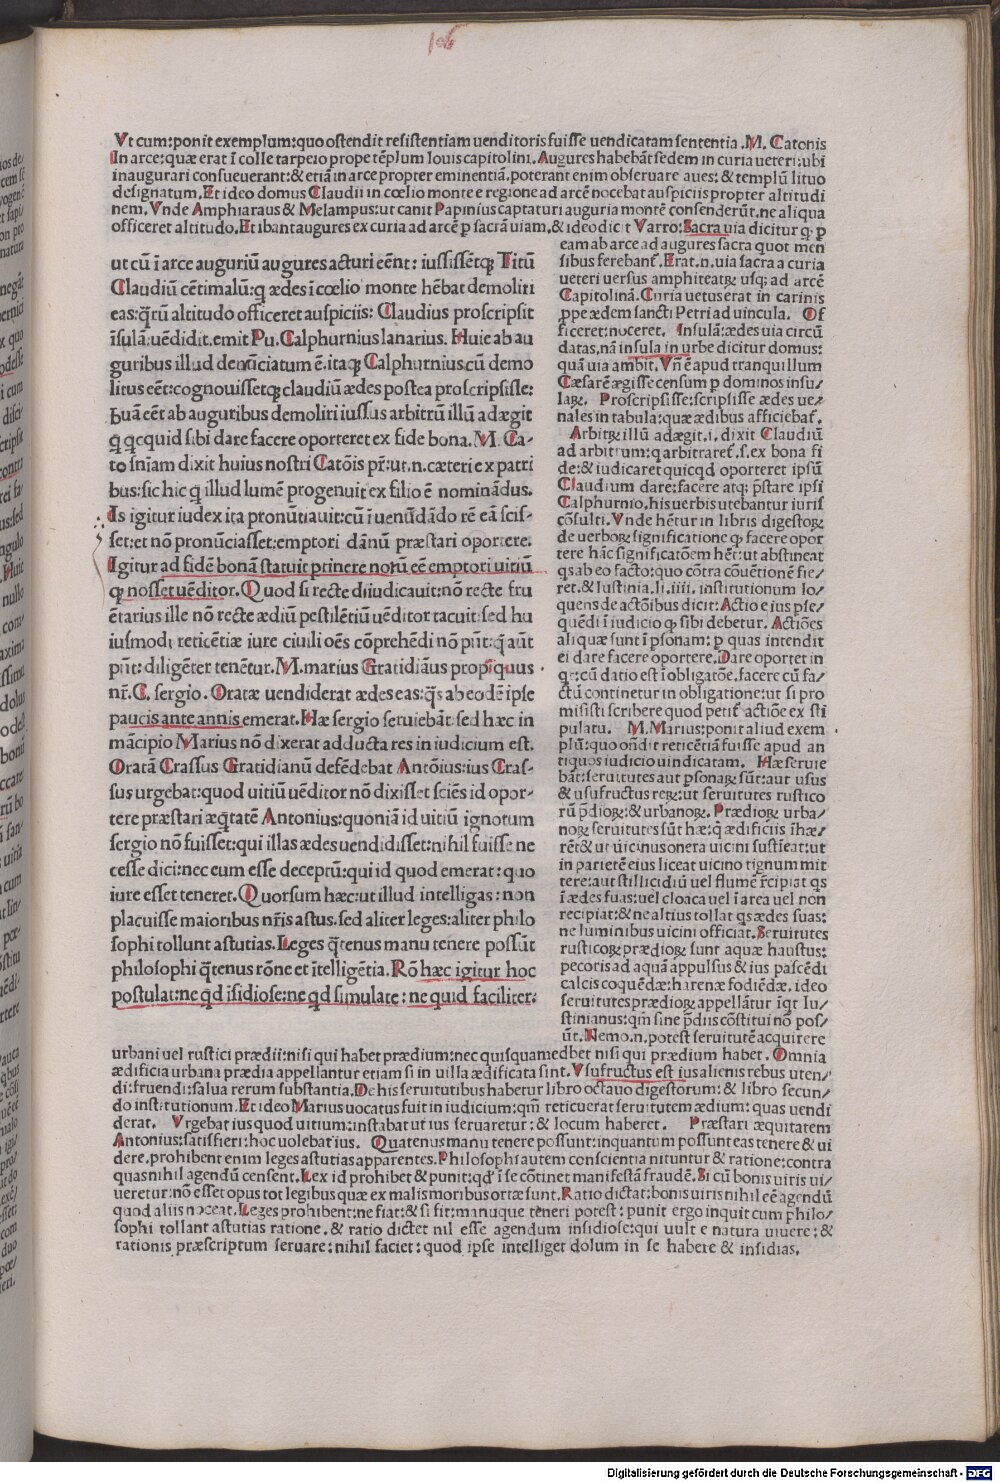 106
Vt cum:ponit exemplum:quo ostendit resistentiam uenditoris fuisse uendicatam sententia .M. Catonis
In arce:quæ erat ī colle tarpeio prope tēplum Iouis capitolini. Augures habebāt sedem in curia ueteri:ubi
inaugurari consueuerant:& etiā in arce propter eminentiā,poterant enim obseruare aues:& templū lituo
designatum.Et ideo domus Claudii in cœlio monte e regione ad arcē nocebat auspiciis propter altitudi
nem. Vnde Amphiaraus & Melampus:ut canit Papinius captaturi auguria montē consenderūt.ne aliqua
officeret altitudo.Et ibant augures ex curia ad arcē p sacrā uiam.& ideo dicit Varro:Sacra uia dicitur q̨ p
ut cū ī arce auguriū augures acturi eēnt: iussissētq̨ Titū
Claudiū cētimalū:q ædes ī cœlio monte hēbat demoliri
eas:q̄rū altitudo officeret auspiciis: Claudius proscripsit
īsulā:uēdidit.emit Pu. Calphurnius lanarius. Huic ab au
guribus illud denūciatum ē.itaq̨ Calphurnius cū demo
litus eēt:cognouissetq̨ claudiū ædes postea proscripsisse:
q̄uā eēt ab auguribus demoliri iussus arbitrū illū adægit
q̄ qcquid sibi dare facere oporteret ex fide bona. M. Ca-
to sniam dixit huius nostri Catōis pr̄:ut.n.cæteri ex patri
bus:sic hic q̄ illud lumē progenuit ex filio ē nominādus.
Is igitur iudex ita pronūtiauit:cū ī uenūdādo rē eā scis-
set:et nō pronūciasset:emptori dānū præstari oportere.
Igitur ad fidē bonā statuit ptinere notū eē emptori uitiū
q̨ nosset uēditor. Quod si recte diiudicauit:nō recte fru
ētarius ille nō recte ædiū pestilētiū uēditor tacuit:sed hu
iusmodi reticētiæ iure ciuili oēs cōprehēdi nō pn̄t:q̄ aūt
pn̄t: diligēter tenētur. M.marius Gratidiāus propīquus
nr̄. C. sergio. Oratæ uendiderat ædes eas:q̄s ab eodē ipse
paucis ante annis emerat. Hæ sergio seruiebāt:sed hæc in
mācipio Marius nō dixerat adducta res in iudicium est.
Oratā Crassus Gratidianū defēdebat Antōius:ius Cras-
sus urgebat:quod uitiū uēditor nō dixisset sciēs id opor-
tere præstari æq̄tatē Antonius:quoniā id uitiū ignotum
sergio nō fuisset:qui illas ædes uendidisset:nihil fuisse ne
cesse dici:nec eum esse deceptū:qui id quod emerat: quo
iure esset teneret. Quorsum hæc:ut illud intelligas : non
placuisse maioribus nr̄is astus.sed aliter leges:aliter philo
sophi tollunt astutias. Leges q̄tenus manu tenere possūt
philosophi q̄tenus rōne et ītelligētia. Rō hæc igitur hoc
postulat:ne q̄d īsidiose:ne q̄d simulate : ne quid faciliter:
eam ab arce ad augures sacra quot mēn
sibus ferebant̄. Erat.n.uia sacra a curia
ueteri uersus amphiteatꝝ usq̨; ad arcē
Capitolinā. Curia uetus erat in carinis
ppe ædem sancti Petri ad uincula. Of
ficeret:noceret. Insulā:ædes uia circū
datas,nā insula in urbe dicitur domus:
quā uia ambit. Vn̄ ē apud tranquillum
Cæsarē ægisse censum p dominos insu/
laꝝ. Proscripsisse:scripsisse ædes ue/
nales in tabula:quæ ædibus afficiebat̄.
Arbitꝝ illū adægit.i. dixit Claudiū
ad arbitrum:q arbitraret̄.s.ex bona fi
de:& iudicaret quicqd oporteret ipsū
Claudium dare:facere atq; p̄stare ipsi
Calphurnio,his uerbis utebantur iuris
cōsulti. Vnde hētur in libris digestoꝝ
de uerboꝝ significatione q̨ facere opor
tere hāc significatōem hēt:ut abstineat
qs ab eo facto:quo cōtra cōuētionē fie/
ret.& Iustinia.li.iiii. institutionum lo/
quens de actōibus dicit: Actio eius pse/
quēdi ī iudicio q̨ sibi debetur. Actiōes
aliquæ sunt ī psonam: p quas intendit
ei dare facere oportere. Dare oportet in
q̨:cū datio est ī obligatōe.facere cū fa/
ctū continetur in obligatione:ut si pro
misisti scribere quod petit̄ actiōe ex sti
pulatu. M. Marius:ponit aliud exem
plū:quo ondit reticētiā fuisse apud an
tiquos iudicio uindicatam. Hæ seruie
bāt:seruitutes aut psonaꝝ sūt:aut usus
& ususfructus reꝝ:ut seruitutes rustico
rū p̄dioꝝ:& urbanoꝝ. Prædioꝝ urba/
noꝝ seruitutes sūt hæ:q̄ ædificiis īhæ/
rēt& ut uicinus onera uicini sustīeat:ut
in parietē eius liceat uicino tignum mit
tere:aut stillicidiū uel flumē r̄cipiat qs
ī ædes suas:uel cloaca uel ī area uel non
recipiat:& ne altius tollat qs ædes suas:
ne luminibus uicini officiat. Seruitutes
rusticoꝝ prædioꝝ sunt aquæ haustus:
pecoris ad aquā appulsus & ius pascēdi
calcis coquēdæ:harenæ fodiēdæ. ideo
seruitutes prædioꝝ appellātur īqt Iu/
stinianus:qm̄ sine p̄diis cōstitui nō pos/
ūt. Nemo.n.potest seruitutē acquirere
urbani uel rustici prædii:nisi qui habet prædium:nec quisquam edbet nisi qui prædium habet. Omnia
ædificia urbana prædia appellantur etiam si in uilla ædificata sint. Vsufructus est ius alienis rebus uten/
di:fruendi:salua rerum substantia.De his seruitutibus habetur libro octauo digestorum: & libro secun/
do institutionum.Et ideo Marius uocatus fuit in iudicium:qm̄ reticuerat seruitutem ædium: quas uendi
derat. Vrgebat ius quod uitium:instabat ut ius seruaretur: & locum haberet. Præstari æquitatem
Antonius:satisfieri:hoc uolebat ius. Quatenus manu tenere possunt:inquantum possunt eas tenere & ui
dere.prohibent enim leges astutias apparentes.Philosophi autem conscientia nituntur & ratione:contra
quas nihil agendū censent.Lex id prohibet & punit:qd̄ ī se cōtinet manifestā fraudē.Si cū bonis uiris ui/
ueretur:nō esset opus tot legibus quæ ex malis moribus ortæ sunt.Ratio dictat:bonis uiris nihil eē agendū
quod aliis noceat.Leges prohibent:ne fiat:& si fit:manuque teneri potest: punit ergo inquit cum philo/
sophi tollant astutias ratione.& ratio dictet nil esse agendum insidiose:qui uult e natura uiuere;&
rationis præscriptum seruare:nihil faciet:quod ipse intelliget dolum in se habere & insidias.
Digitalisierung gefördert durch die Deutsche Forschungsgemeinschaft - DFG